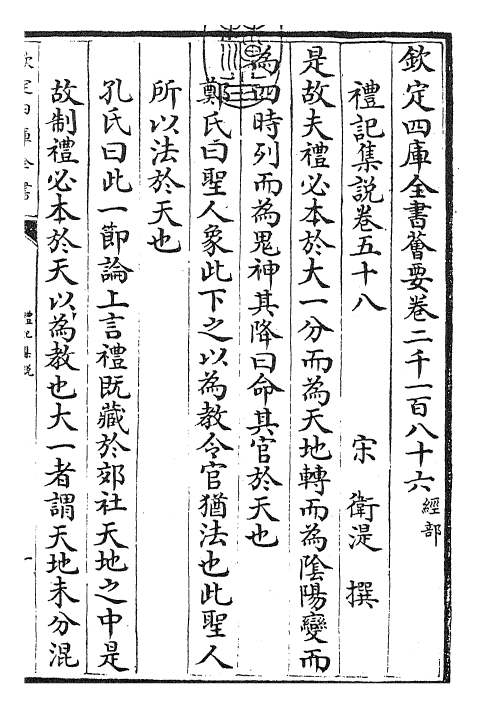 欽定四庫全書薈要卷二千一百八十六經部
禮記集說卷五十八　宋　衛湜　撰
是故夫禮必本於大一分而為天地轉而為陰陽變而
為四時列而為鬼神其降曰命其官於天也
鄭氏曰聖人象此下之以為教令官猶法也此聖人
所以法於天也
孔氏曰此一節論上言禮既藏於郊社天地之中是
故制禮必本於天以為教也大一者謂天地未分混
欽定四庫全書
禮記集說
一